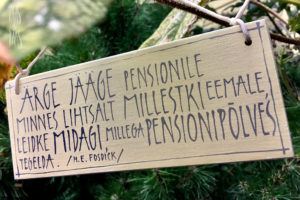 ÄRGE JÄÄGE PENSIONILE
MINNES LIHTSALT MILLESTKI EEMALE,
LEIDKE MIDAGI, MILLEGA PENSIONIPÕLVES
TEGELDA. /H.E. FOSDICK/